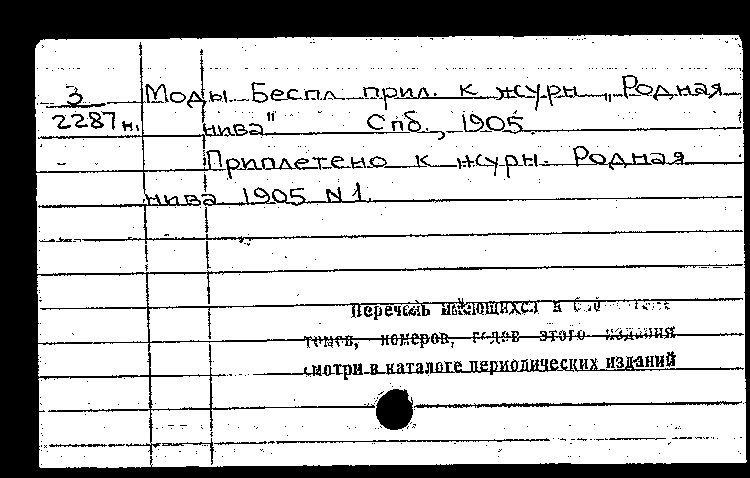 3 Моды Беспл прил. к журн „Родная
2287 н. нива" Спб., 1905
Приплетено к журн. Родная
нива 1905 N 1.
Перечень имеющихся в
томов, номеров, годов этого издания
смотри в каталоге периодических изданий